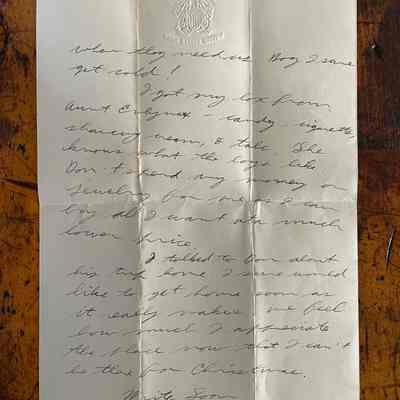 when they need us Boy I sure
get sold!
I got my box from
Aunt - candy - cigarette
shaving cream, & talc. She
knows what the boys like
Don't spend any money on
jewelry for me as I can
buy all I want at a much
lower price.
I talked to Don about
his trip home I sure would
like to get home soon as
it really makes me feel
how much I appreciate
the place now that I can't
be there for Christmas.
Write Soon